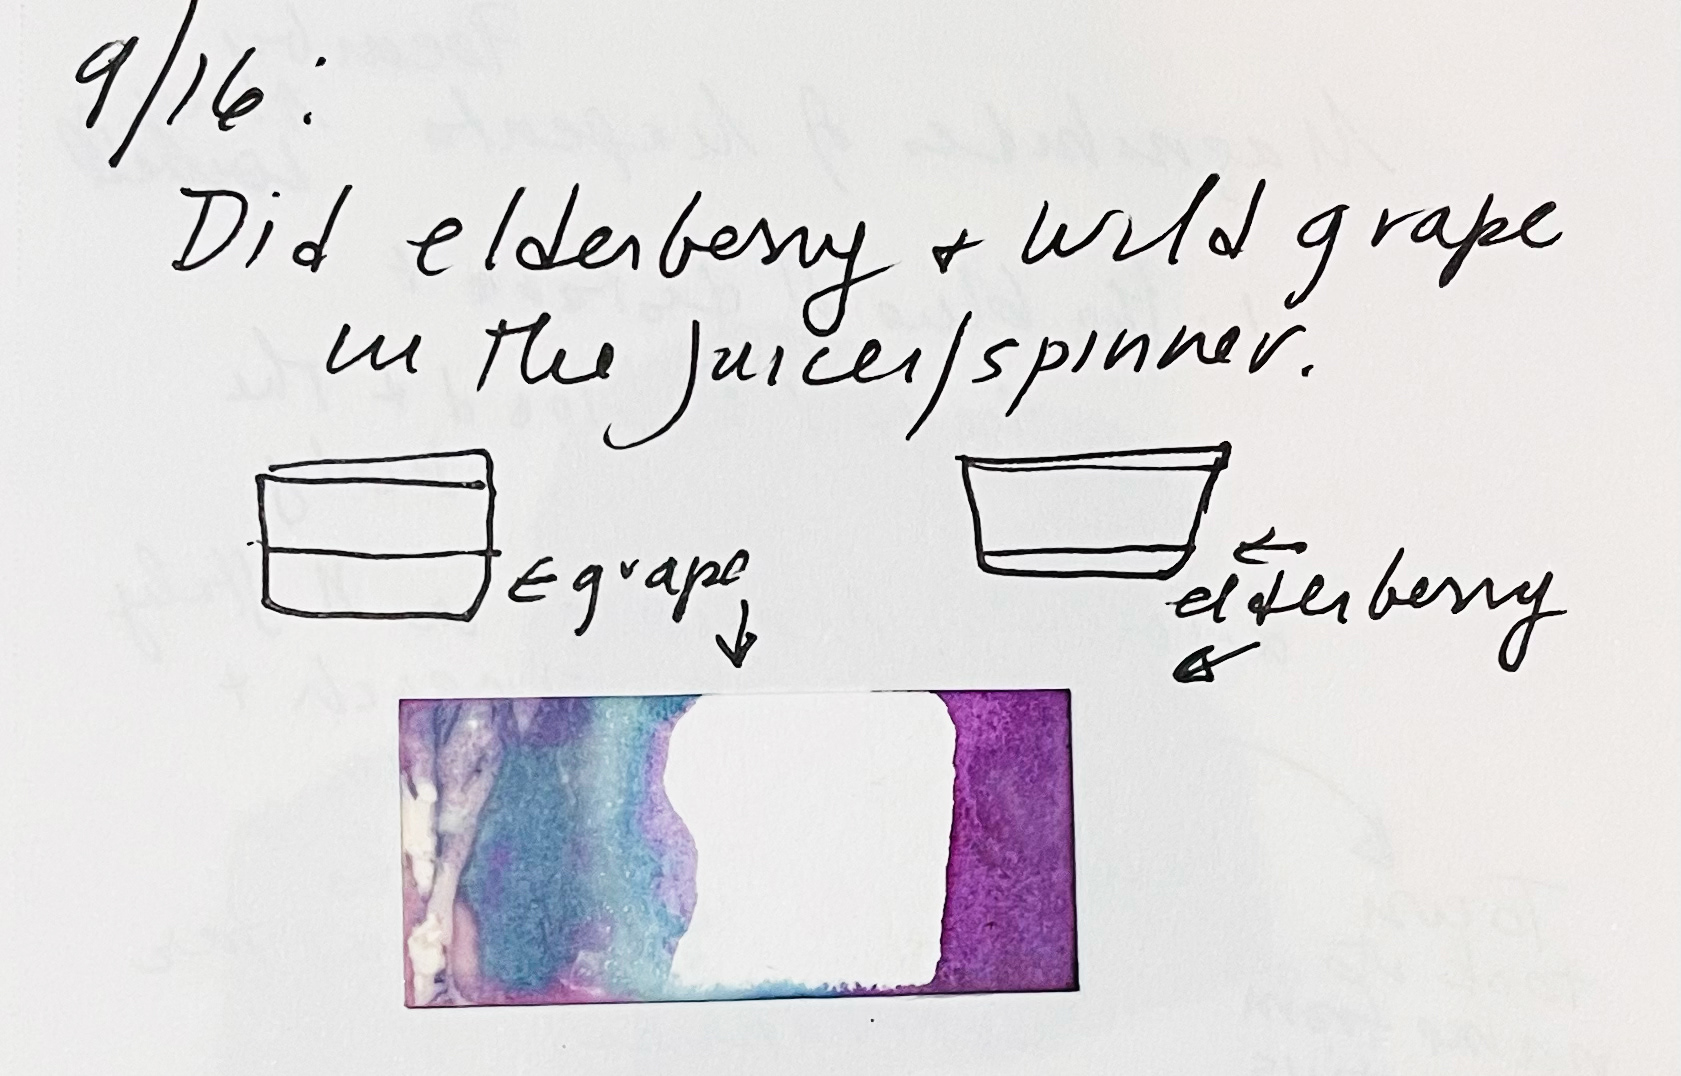 9/16:
Did elderberry + wild grape
in the juicer/spinner.
← grape
↓
←
elderberry
↙